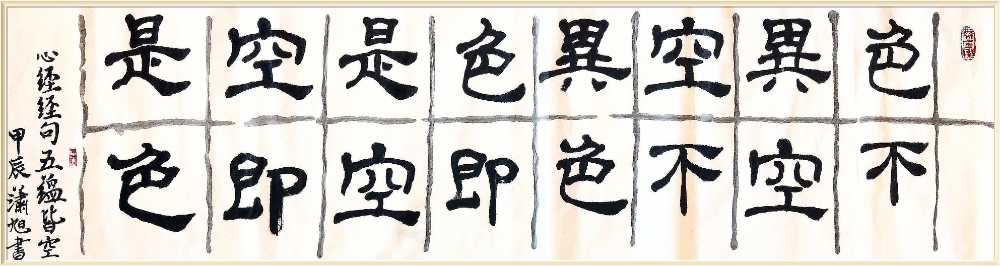 色不
異空
空不
異色
色即
是空
空即
是色
心經經句五蘊皆空
甲辰瀟旭書